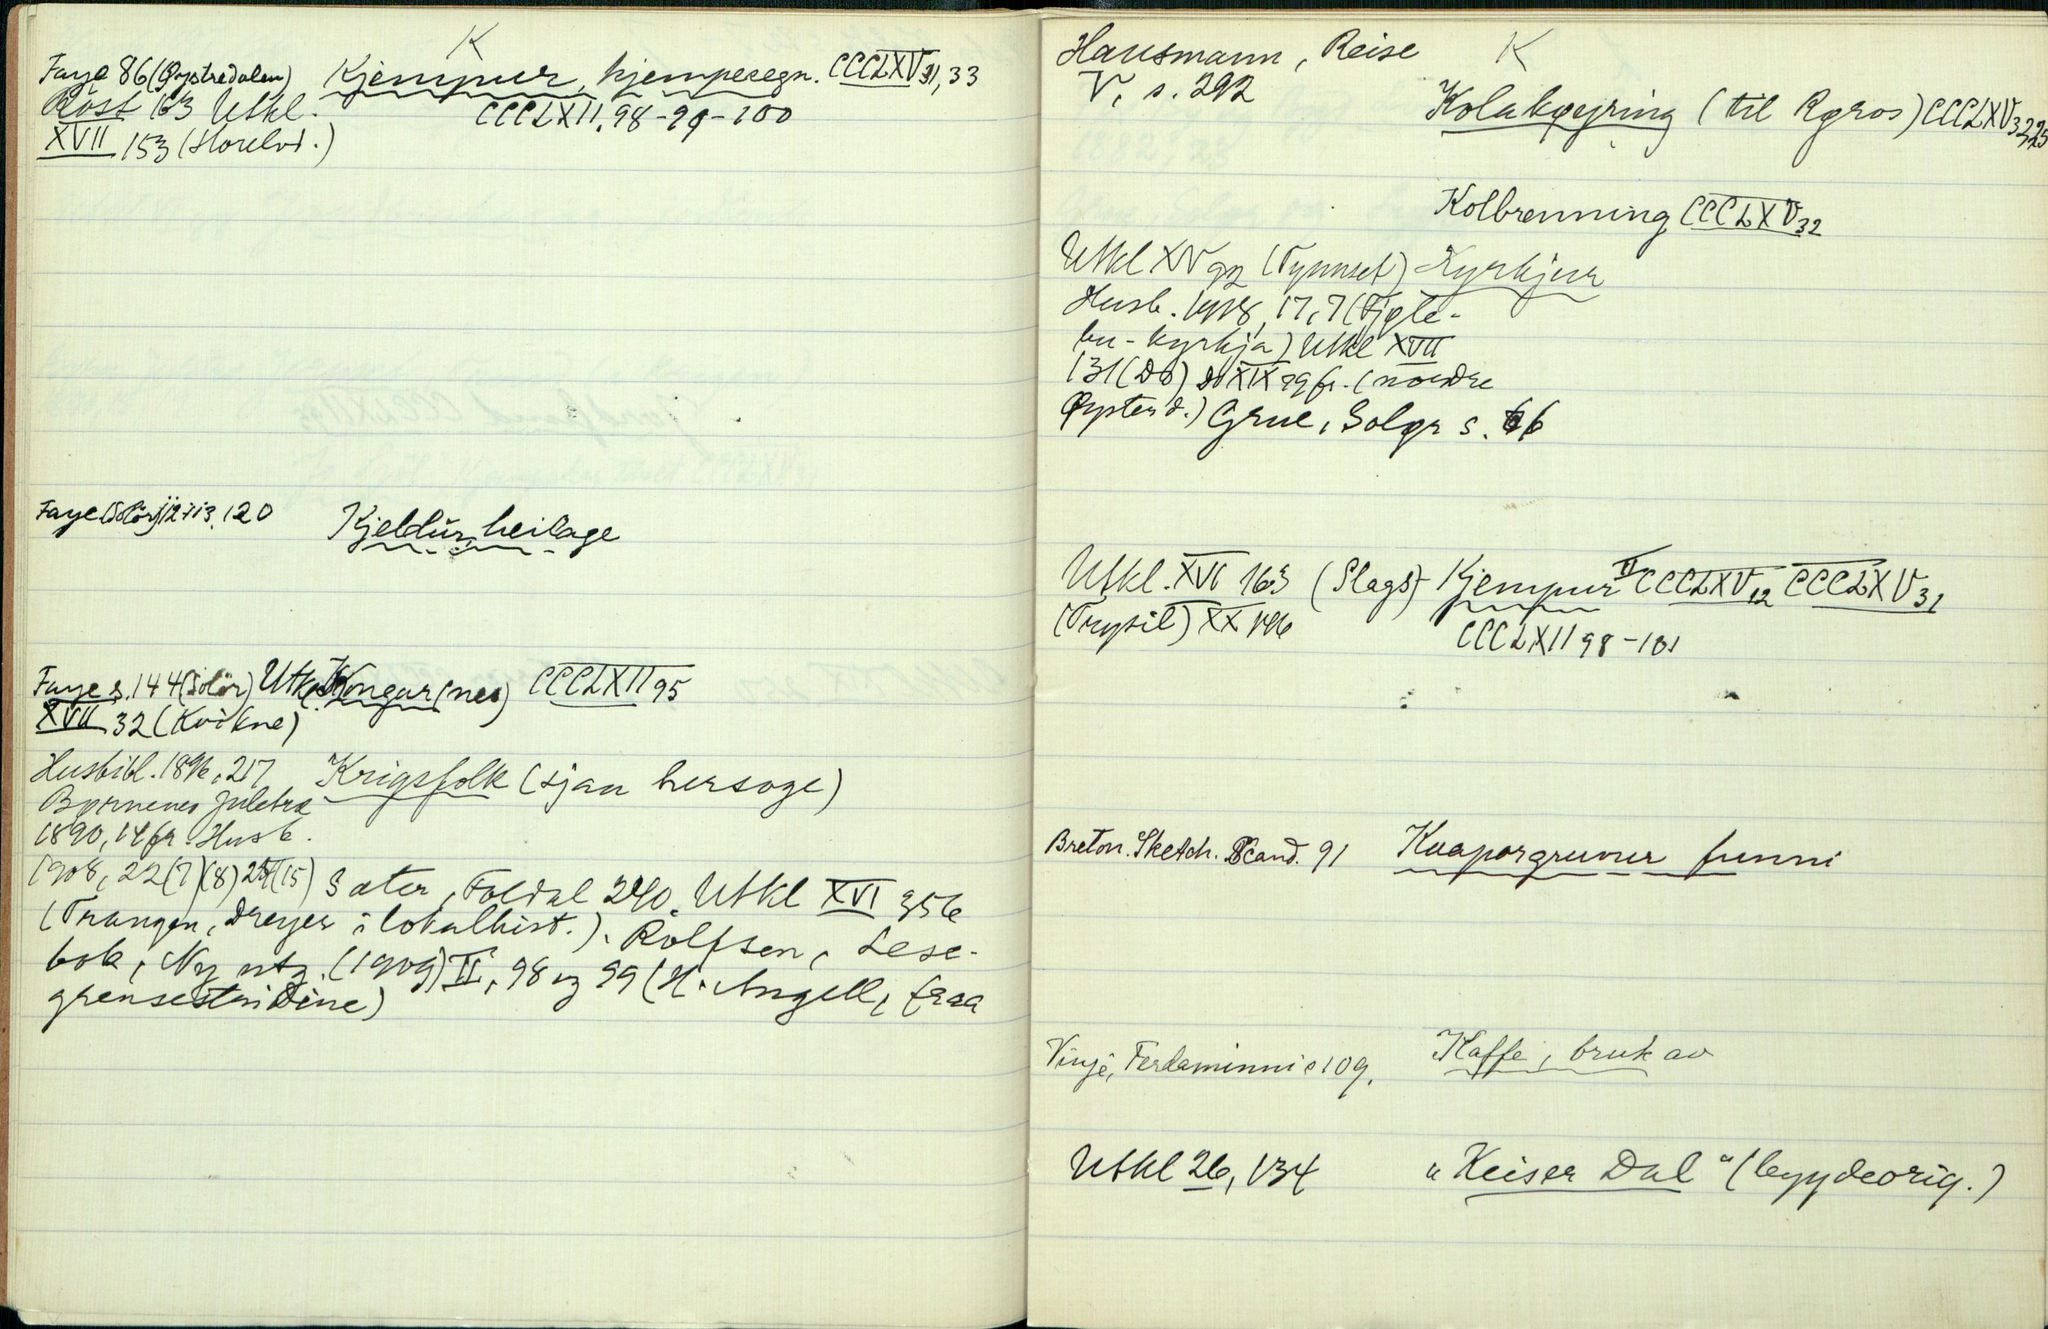 K
Faye 86 (Øystredalen) Kjempur, kjempesegn. CCCLXV 31, 33
Röst 163 Utkl. CCCLXII, 98-99-100
XVII 153 (Horelvd.)
Faye (Solör) 112 113, 120 Kjeldur, heilage
Faye s. 144 (Solör) Utkl. Kongur (nes) CCCLXII 95
XVII 32 (Kvikne)
Husbibl. 1896, 217 Krigsfolk (sjaa hersoge)
Børnenes Juletræ
1890, 14 fr. Husb.
1908, 22 (7) (8) 25 (15) Sæter, Foldal 240. Utkl XVI 356
(Trangen, Dreyer i lokalhist.). Rolfsen, Lese-
bok, Ny utg. (1909) II, 98 og 99 (H. Angell, fraa
grensestridine)
Hausmann, Reise K
V, s. 292
Kolakøyring (til Røros) CCCLXV 32, 25
Kolbrenning CCCLXV 32
Utkl XV 92 (Tynnset) Kyrkjur
Husb. 1908, 17, 7 (Fjøle-
bu-kyrkja) Utkl XVII
131 (Do) Do XIX 79 fr. (nordre
Øysterd.) Grue, Solør s. 66
Utkl. XVI 163 (Slags) Kjempur II CCCLXV 12 CCCLXV 31
(Trysil) XX 146 CCCLXII 98-101
Breton. Sketch. Scand. 91 Kaaporgruvur funni
Vinje, Ferdaminni s 109. Kaffe, bruk av
Utkl 26, 134 "Keiser Dal" (bygdeorig.)